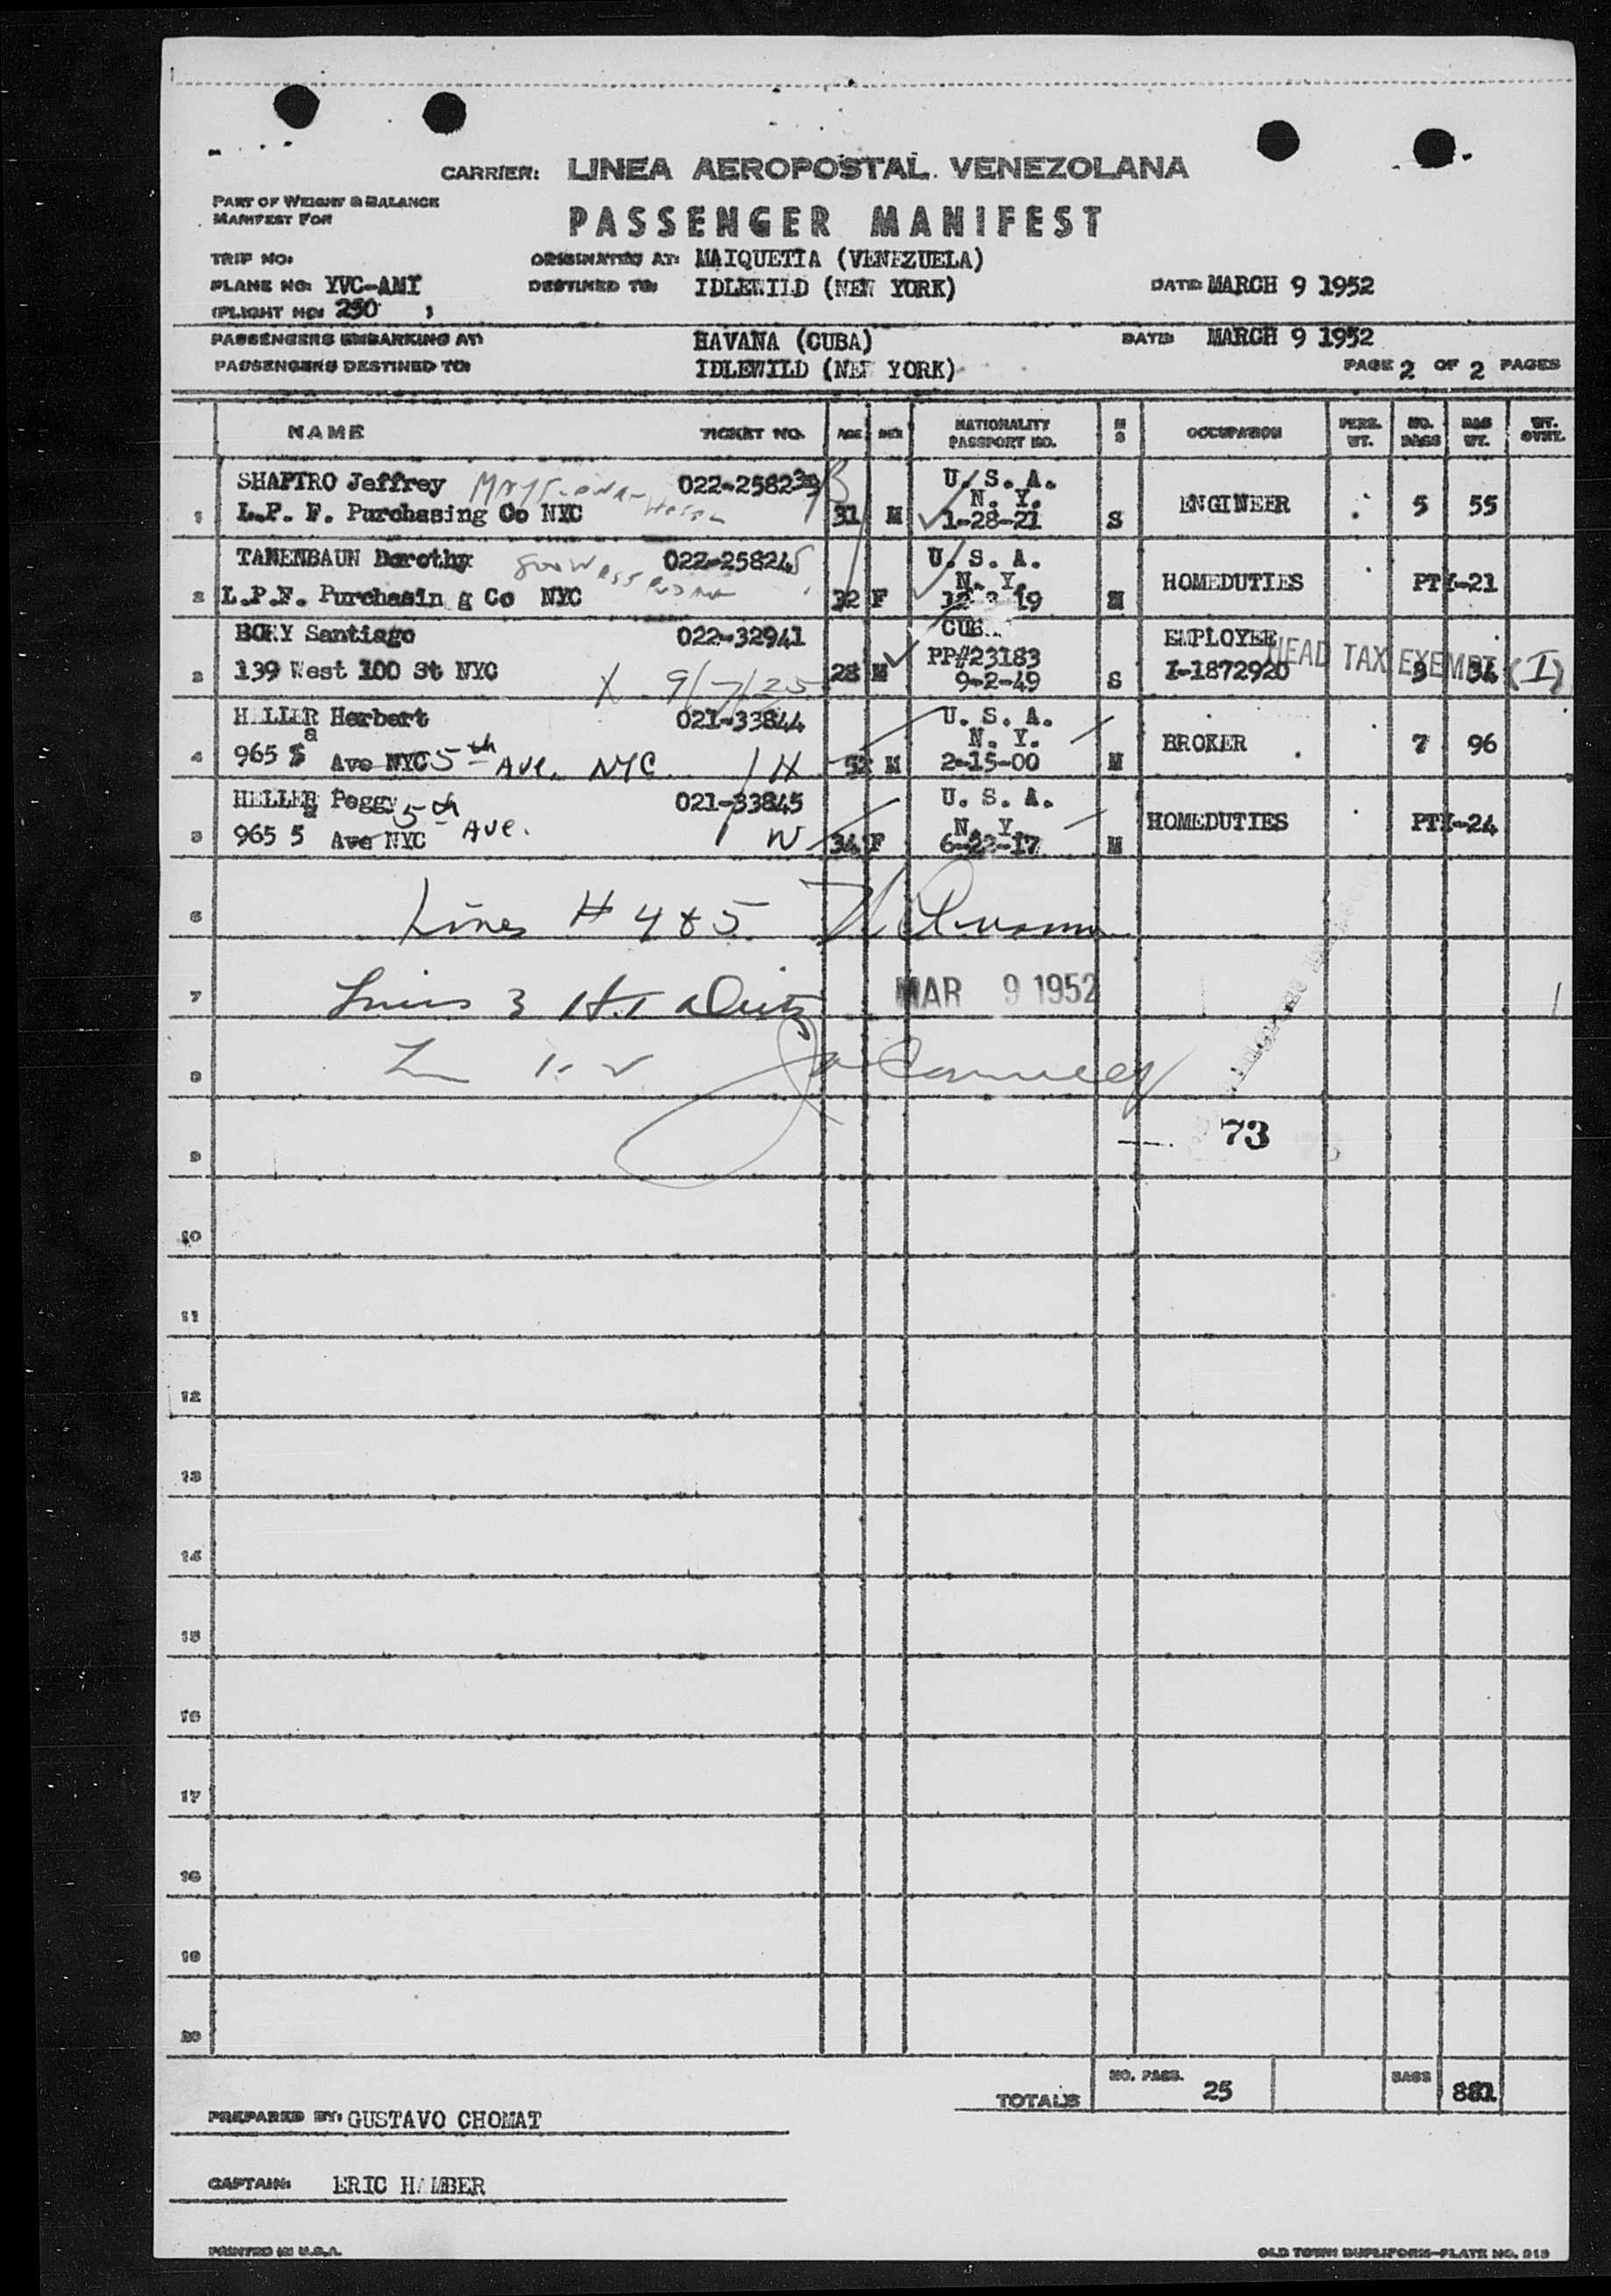 CARRIER: LINEA AEROPOSTAL VENEZOLANA
PART OF WEIGHT & BALANCE
MANIFEST FOR
PASSENGER MANIFEST
TRIP NO:
ORIGINATED AT: MAIQUETIA (VENEZUELA)
PLANE NO: YVC-AMI
DESTINED TO: IDLEWILD (NEW YORK)
DATE: MARCH 9 1952
(FLIGHT NO: 250 )
PASSENGERS EMBARKING AT: HAVANA (CUBA) DATE: MARCH 9 1952
PASSENGERS DESTINED TO: IDLEWILD (NEW YORK) PAGE 2 OF 2 PAGES
NAME TICKET NO. AGE SEX NATIONALITY PASSPORT NO. M S OCCUPATION PERS. WT. NO. BAGS BAG WT. WT. OVHT.
SHAPIRO Jeffrey 022-258239 U. S. A.
N. Y.
1 L.P. F. Purchasing Co NYC 31 M 1-28-21 S ENGINEER 5 55
TANENBAUN Dorothy 022-258245 U. S. A.
N. Y.
2 L.P.F. Purchasin g Co NYC 32 F 19 HOMEDUTIES PTY-21
BORY Santiago 022-32941 CUB EMPLOYEE
HEAD TAX EXEMPT (I)
3 139 West 100 St NYC 28 M PP#23183 I-1872920 34
X 9/7/25 9-2-49 S
HELLER Herbert 021-33844 U. S. A.
N. Y.
4 965 5 a Ave NYC 5th Ave. NYC 1 H 52 M 2-15-00 M BROKER 7 96
HELLER Peggy 021-33845 U. S. A.
N. Y.
5 965 5 a Ave NYC 5th Ave. 1 W 34 F 6-22-17 M HOMEDUTIES PTY-24
6 Lines # 4 & 5
7 3 MAR 9 1952
8
73
9
10
11
12
13
14
15
16
17
18
19
20
TOTALS NO. PASS. 25 BAGS 881
PREPARED BY: GUSTAVO CHOMAT
CAPTAIN: ERIC HAMBER
PRINTED IN U.S.A.
OLD TOWN DUPLIFORM-PLATE NO. 913